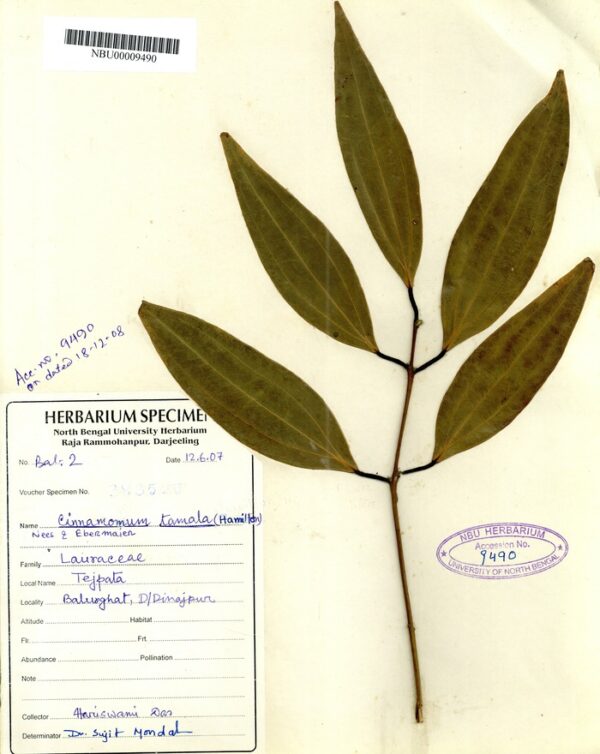 NBU00009490
Acc. no. 9490
on dated 18-12-08
HERBARIUM SPECIMEN
North Bengal University Herbarium
Raja Rammohanpur, Darjeeling
No. Bal: 2 Date 12.6.07
Voucher Specimen No.
Name Cinnamomum tamala (Hamilton)
Nees & Ebermaier
Family Lauraceae
Local Name Tejpata
Locality Balurghat, D/Dinajpur
Altitude Habitat
Flr. Frt.
Abundance Pollination
Note
Collector Hariswami Das
Determinator Dr. Sujit Mondal
NBU HERBARIUM
Accession No.
9490
UNIVERSITY OF NORTH BENGAL